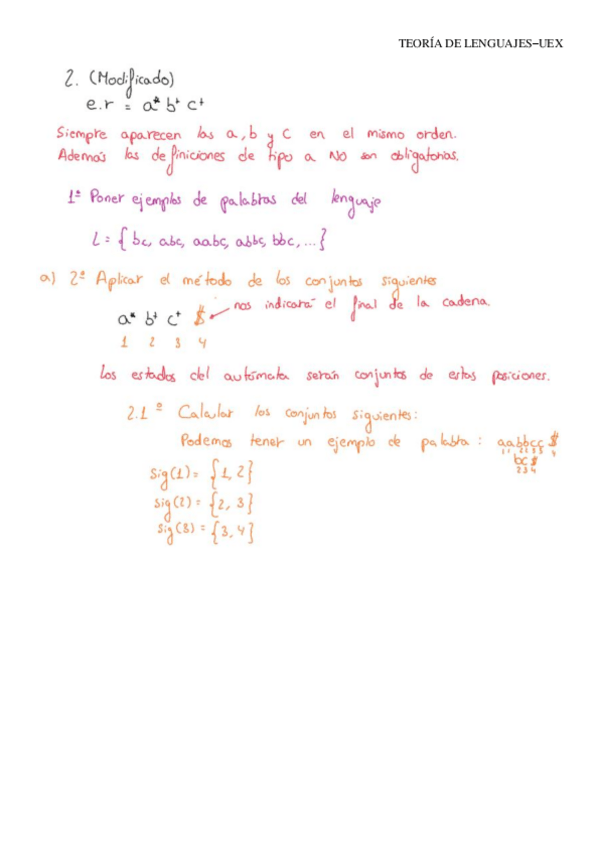 TEORÍA DE LENGUAJES–UEX
2. (Modificado)
e.r = a* b⁺ c⁺
Siempre aparecen las a, b y c en el mismo orden.
Además las definiciones de tipo a NO son obligatorias.
1º Poner ejemplos de palabras del lenguaje
L = { bc, abc, aabc, abbc, bbc, ... }
a) 2º Aplicar el método de los conjuntos siguientes
a* b⁺ c⁺ $ nos indicará el final de la cadena.
1 2 3 4
Los estados del autómata serán conjuntos de estas posiciones.
2.1º Calcular los conjuntos siguientes:
Podemos tener un ejemplo de palabra: aabbcc $
1 1 2 2 3 3 4
bc $
2 3 4
sig(1) = {1, 2}
sig(2) = {2, 3}
sig(3) = {3, 4}